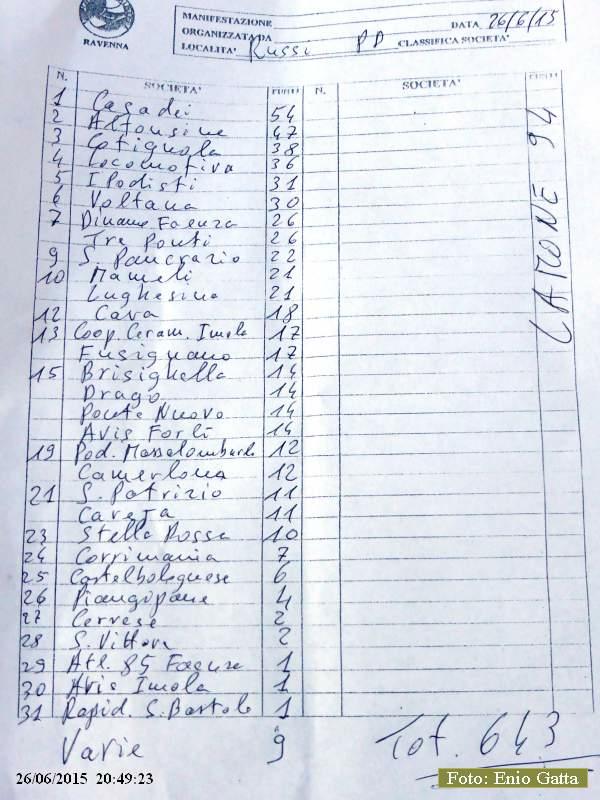 RAVENNA
MANIFESTAZIONE
ORGANIZZATA DA
LOCALITA' Russi PD
DATA 26/6/15
CLASSIFICA SOCIETA'
N. SOCIETA' PUNTI N. SOCIETA' PUNTI
1 Casadei 54
2 Alfonsine 47
3 Cotignola 38
4 Locomotiva 36
5 Ipodisti 31
6 Voltana 30
7 Diname Faenza 26
Tre Ponti 26
9 S. Pancrazio 22
10 Mameli 21
Lughesina 21
12 Cava 18
13 Coop. Ceram. Imola 17
Fusignano 17
15 Brisighella 14
Drago 14
Ponte Nuovo 14
Avis Forlì 14
19 Pod. Massalombarda 12
Camerlona 12
21 S. Patrizio 11
Caveja 11
23 Stella Rossa 10
24 Corrimania 7
25 Castelbolognese 6
26 Piangipane 4
27 Cervese 2
28 S. Vittore 2
29 Atl. 85 Faenza 1
30 Avis Imola 1
31 Rapid. S. Bartolo 1
Varie 9
Tot. 643
LAMONE 94
26/06/2015 20:49:23
Foto: Enio Gatta